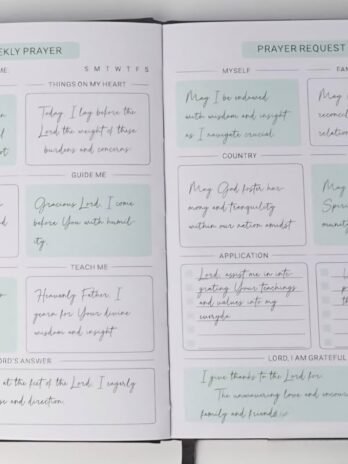 EKLY PRAYER
ME:
S M T W T F S
THINGS ON MY HEART
Today, I lay before the
Lord the weight of these
burdens and concerns
GUIDE ME
Gracious Lord, I come
before You with humil-
ity.
TEACH ME
Heavenly Father, I
yearn for Your divine
wisdom and insight
ORD'S ANSWER
at the feet of the Lord, I eagerly
se and direction.
PRAYER REQUEST
MYSELF
May I be endowed
with wisdom and insight
as I navigate crucial
FAM
May
reconcil
relation
COUNTRY
May God foster har-
mony and tranquility
within our nation amidst
May
Spiri
munity
APPLICATION
Lord, assist me in inte-
grating Your teachings
and values into my
everyda
LORD, I AM GRATEFUL
I give thanks to the Lord for:
The unwavering love and encour
family and friends